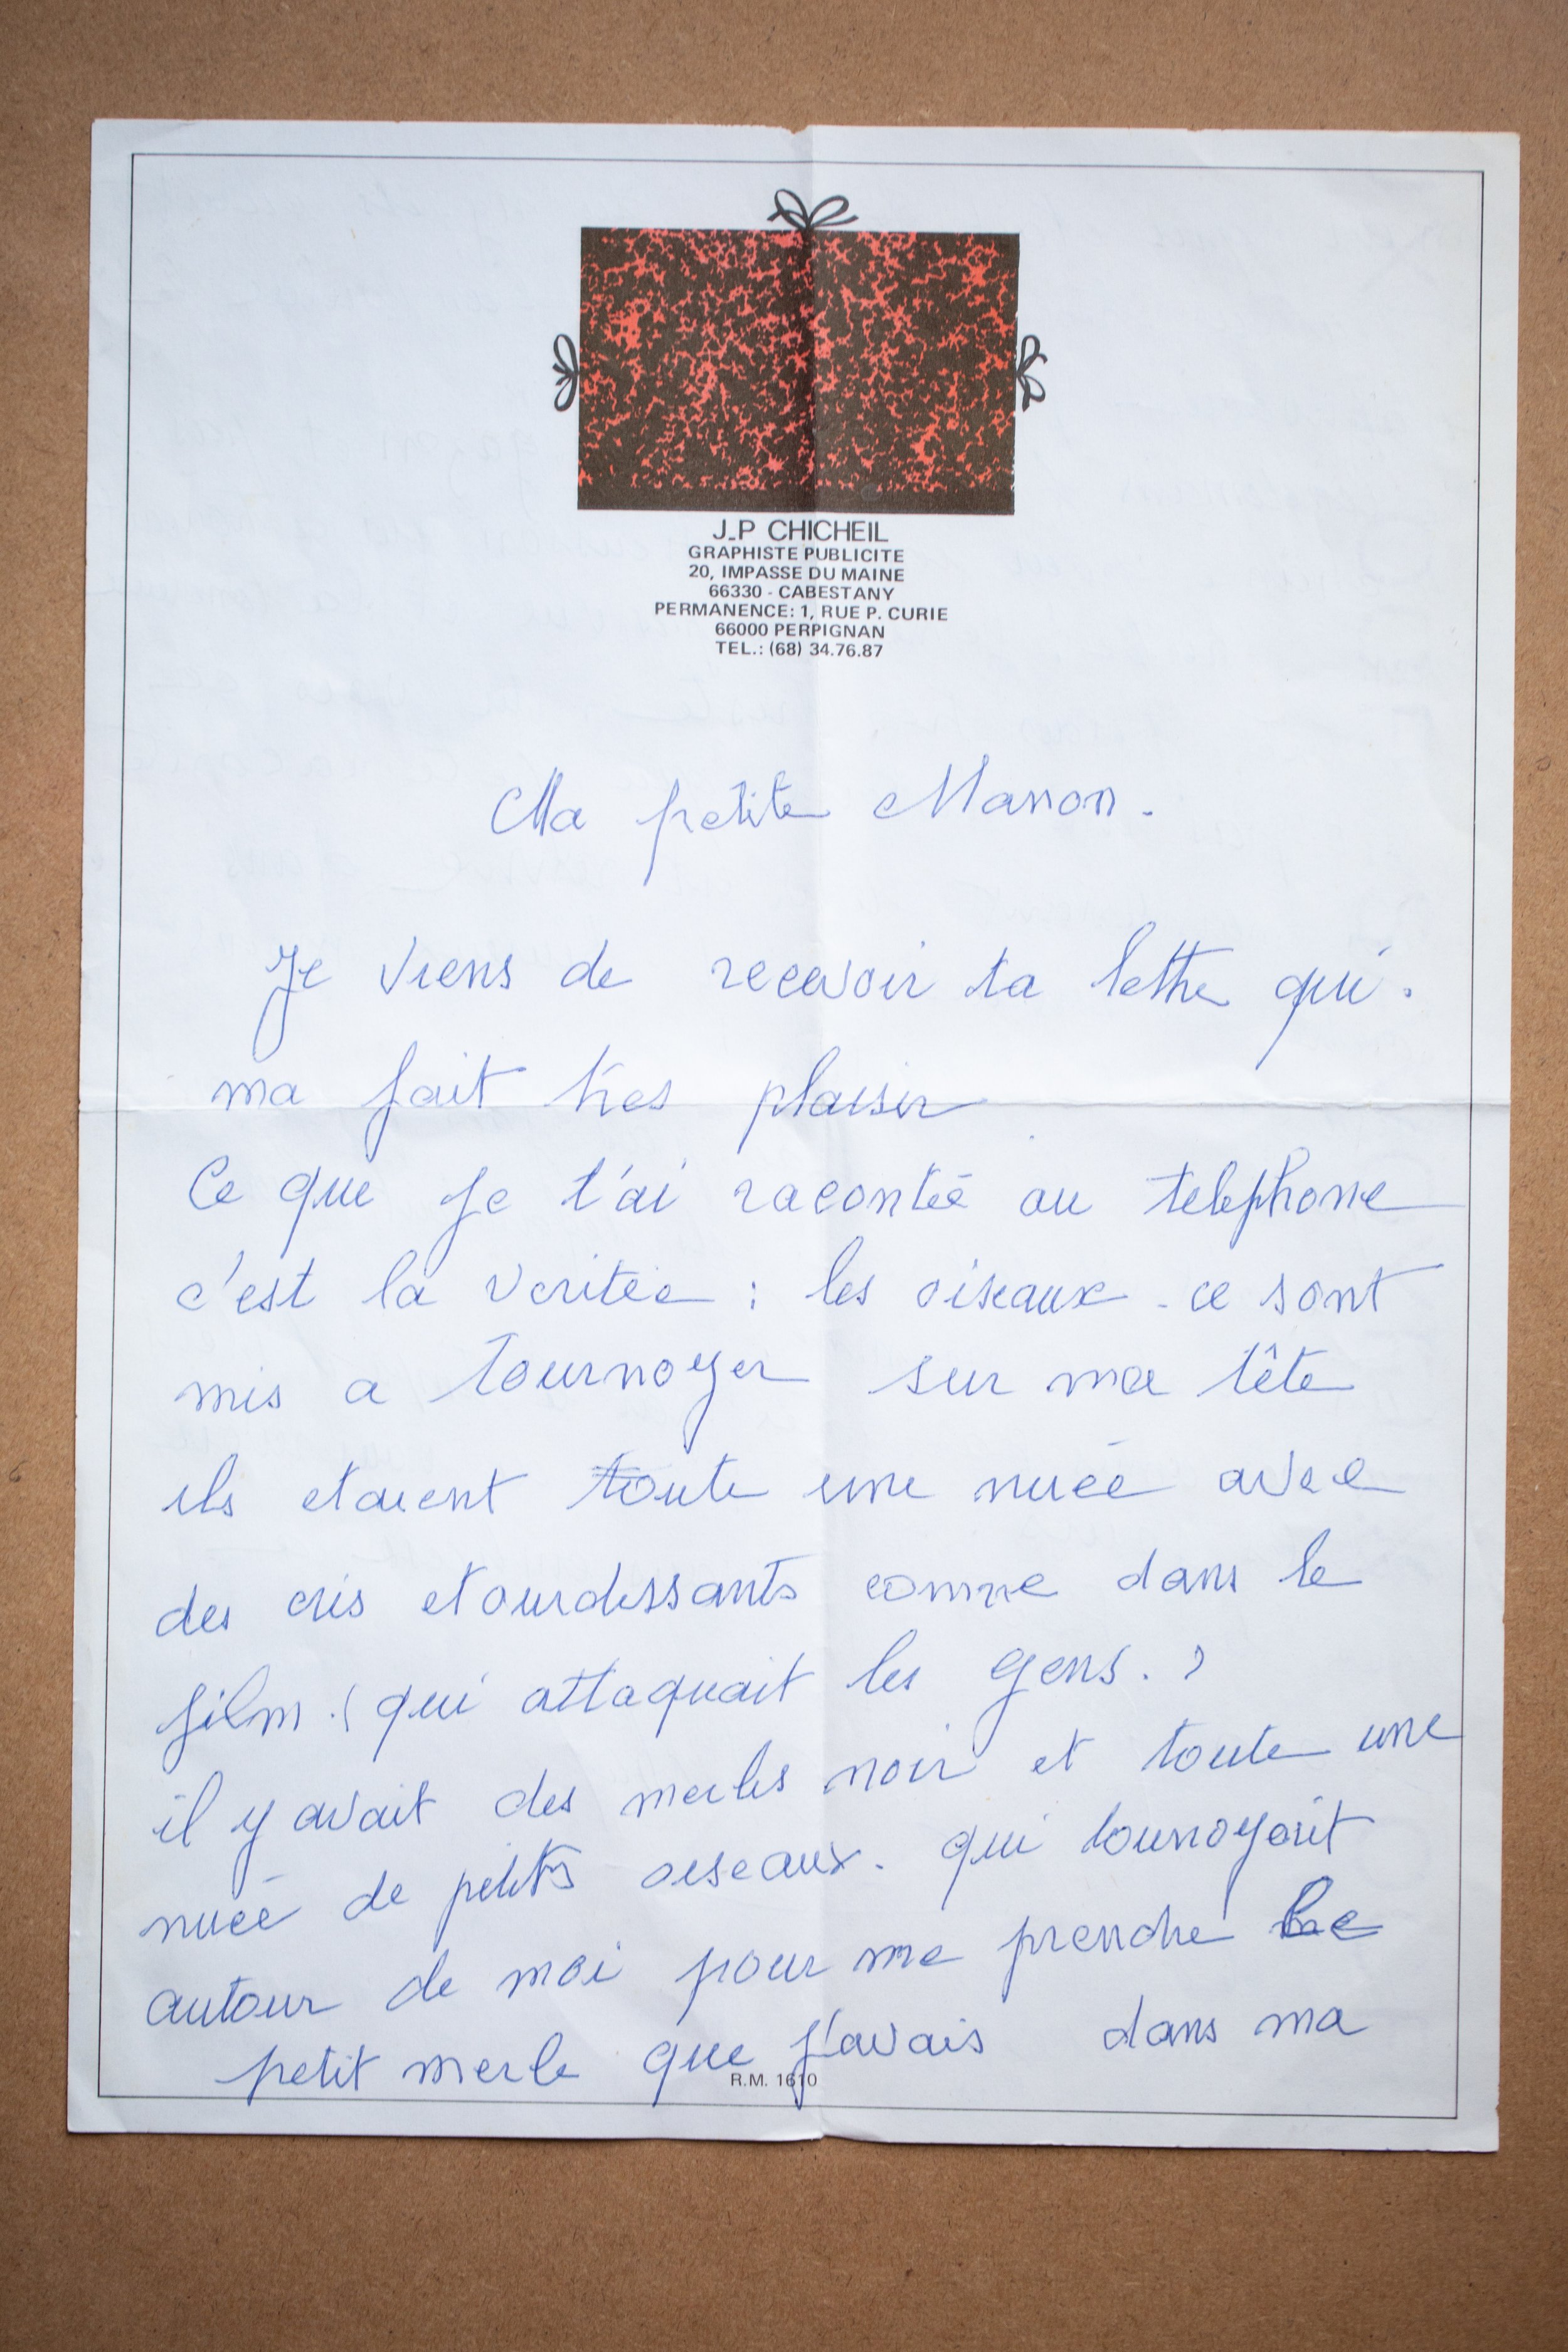 J_P CHICHEIL
GRAPHISTE PUBLICITE
20, IMPASSE DU MAINE
66330 - CABESTANY
PERMANENCE: 1, RUE P. CURIE
66000 PERPIGNAN
TEL.: (68) 34.76.87
Ma petite Manon.
Je viens de recevoir ta lettre qui.
ma fait tres plaisir
Ce que je t'ai racontée au telephone
c'est la veritée : les oiseaux - ce sont
mis a tournoyer sur ma tête
ils etaient toute une nuée avec
des cris etourdissants comme dans le
film. (qui attaquait les gens.)
il y avait des merles noir et toute une
nuée de petits oiseaux. qui tournoyait
autour de moi pour me prendre le
petit merle que j'avais dans ma
R.M. 1610